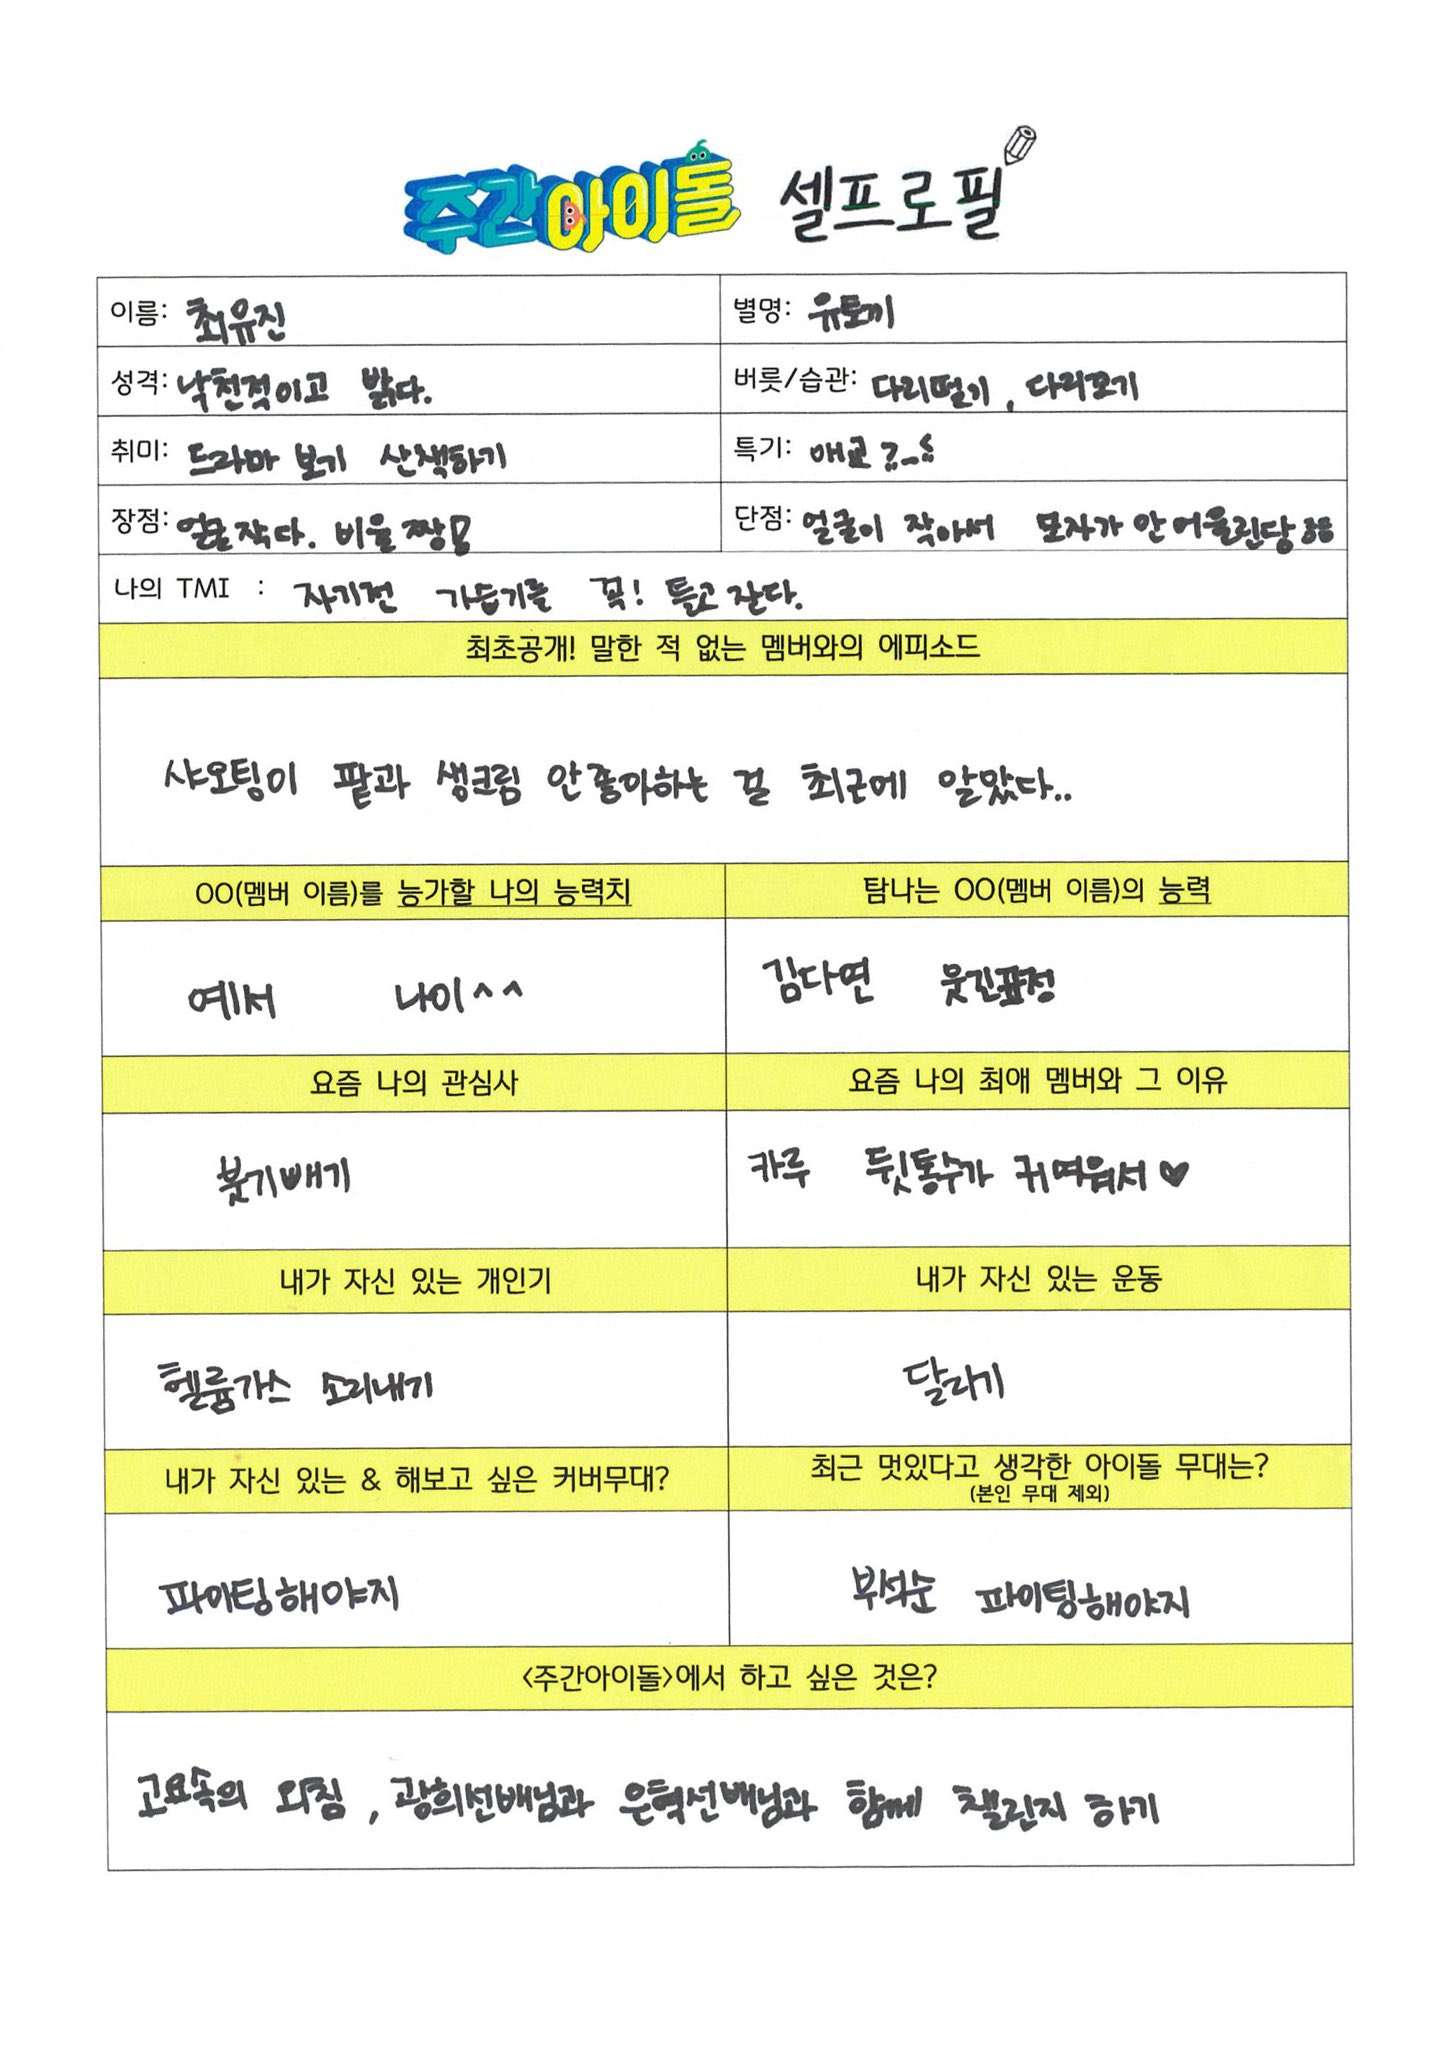 주간아이돌 셀프로필
이름: 최유진
별명: 유토끼
성격: 낙천적이고 밝다.
버릇/습관: 다리떨기, 다리꼬기
취미: 드라마 보기 산책하기
특기: 애교?_
장점: 얼굴작다. 비율 짱!
단점: 얼굴이 작아서 모자가 안 어울린당ㅎㅎ
나의 TMI : 자기전 가습기를 꼭! 틀고 잔다.
최초공개! 말한 적 없는 멤버와의 에피소드
샤오팅이 팥과 생크림 안좋아하는 걸 최근에 알았다..
OO(멤버 이름)를 능가할 나의 능력치
탐나는 OO(멤버 이름)의 능력
예서 나이^^
김다연 웃긴표정
요즘 나의 관심사
요즘 나의 최애 멤버와 그 이유
붓기빼기
카루 뒷통수가 귀여워서♥
내가 자신 있는 개인기
내가 자신 있는 운동
헬륨가스 소리내기
달리기
내가 자신 있는 & 해보고 싶은 커버무대?
최근 멋있다고 생각한 아이돌 무대는?
(본인 무대 제외)
파이팅해야지
부석순 파이팅해야지
<주간아이돌>에서 하고 싶은 것은?
고요속의 외침, 광희선배님과 은혁선배님과 함께 챌린지 하기